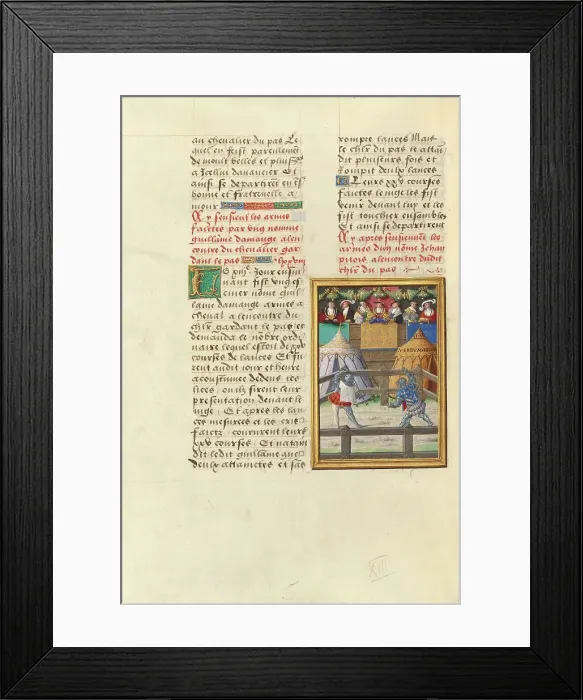 au chevalier du pas Le
quel en feist pareillement
de moult belles et plus
a Jectin davancier Et
ainsi se departirent en
bonne et fraternelle a
mour
Cy sensieut les armes
faictes par ung nomme
guillame damange alen
contre du chevalier gar
dant le pas
Jour ensui
vant fist
nome guil
lame damange armes a
cheval a lencontre du
chlr gardant le pas et
demanda le nobre ordi
naire lequel estoit de xxv
courses de lances Et fu
rent audit iour et heure
acoustumee dedens les
lices ou ilz firent leur
presentation devant le
iuge Et apres les lan
ces mesurees et les cris
faictz coururent leurs
xxv courses Et
dit ledit guillame que
deulx attaintes et
rompre lances Mais
le chlr du pas le attai
dit plusieurs fois et
rompit deulx lances
Leurs xxv courses
faictes le iuge les fist
venir devant luy et les
fist toucher ensamble
Et ainsi se departirent
Cy apres sensieuent les
armes dun nome Jehan
pitois alencontre dudit
chlr du pas